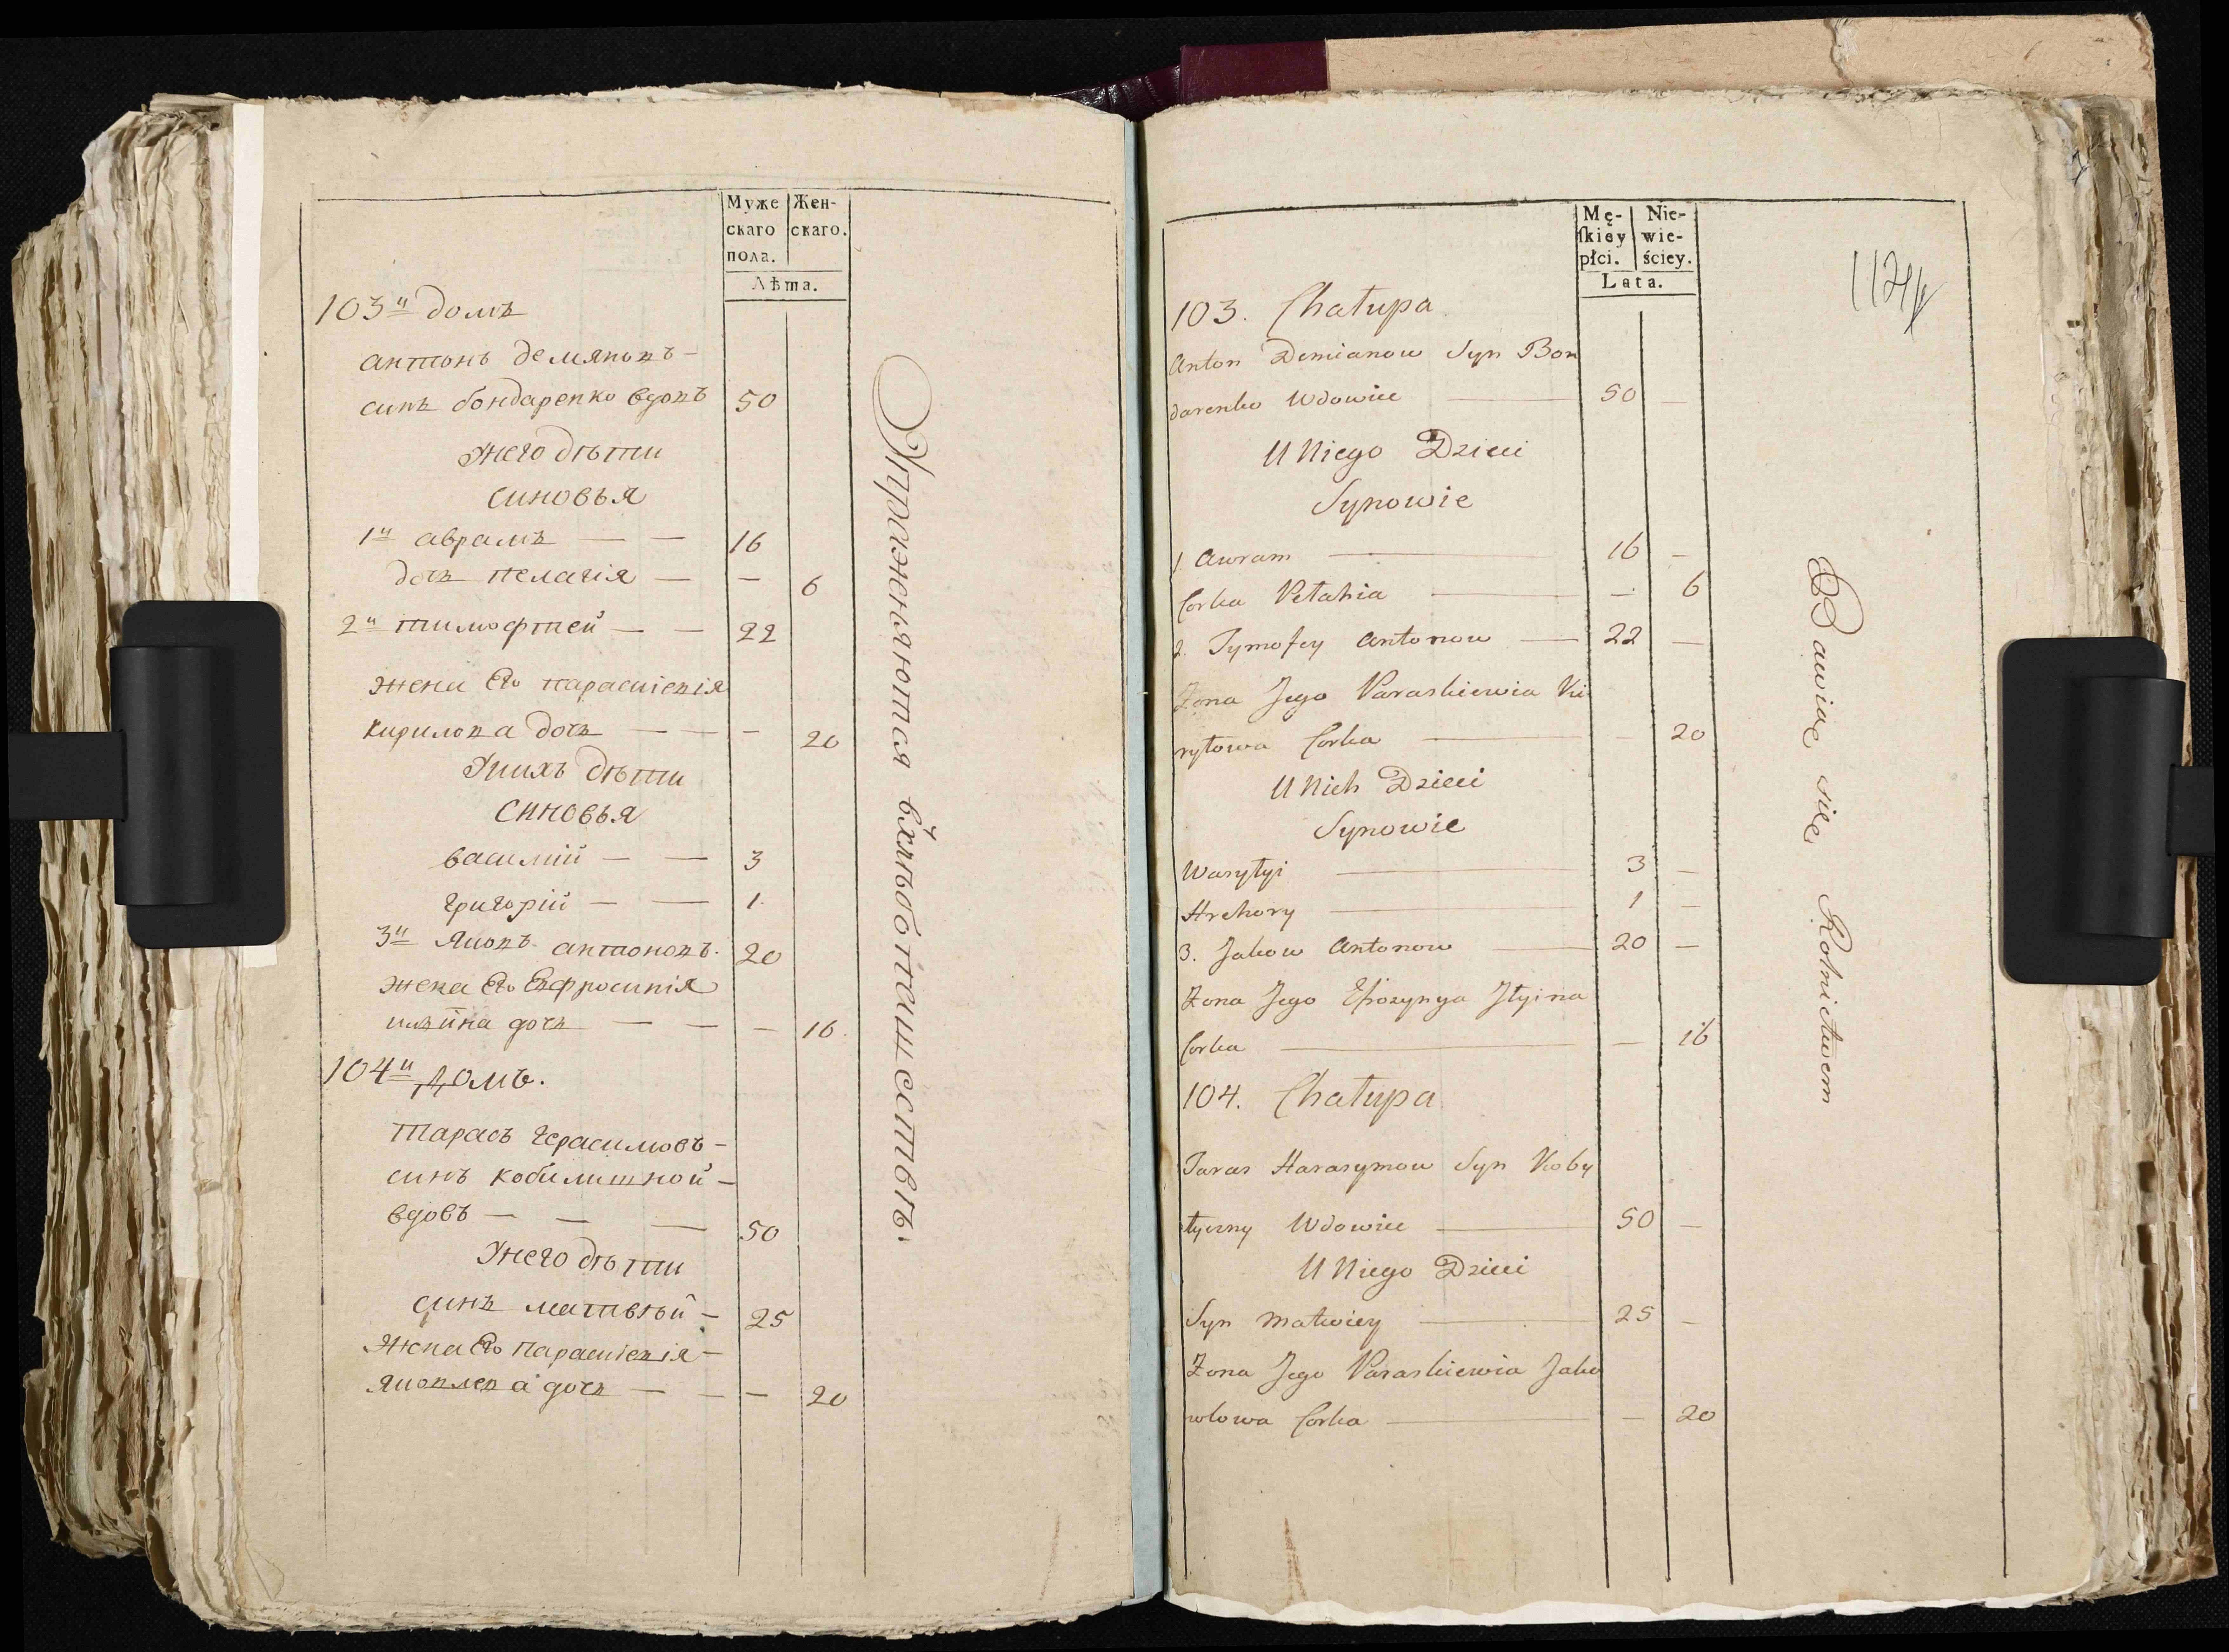 Муже
скаго
пола.
Жен-
скаго.
Лѣта.
103й домъ
антонъ демяновъ-
синъ бондаренко вдовъ 50
Унего дѣти
синовья
1й аврамъ — — 16
дочь пелагія — — 6
2й тимофтей — — 22
жена Его параскіевія
кирилова дочь — — — 20
Унихъ дѣти
синовья
василий — — 3
григорій — — 1.
3й яковъ антоновъ. 20
жена Его Евфросинія
илїина дочь — — — 16.
104й домъ.
тарасъ герасимовъ-
синъ кобилишной-
вдовъ — — — 50
Унего дѣти
синъ матвѣй - 25
жена Его параскіевія-
яковлева дочь — — — 20
Упражняются вхлѣбопашествѣ.
Mę-
skiey
płci.
Nie-
wie-
ściey.
Lata.
103. Chałupa
Anton Demianow Syn Bon
darenko Wdowiec — 50 —
U Niego Dzieci
Synowie
1 Awram — 16 —
Corka Pełahia — — 6
2. Tymofey Antonow — 22 —
Zona Jego Paraskiewia Ki
ryłowa Corka — — 20
U Nich Dzieci
Synowie
Wasyłyi — 3 —
Hrehory — 1 —
3. Jakow Antonow — 20 —
Zona Jego Efrozynya Jłyina
Corka — — 16
104. Chałupa
Taras Harasymow Syn Koby
łyczny Wdowiec — 50 —
U Niego Dzieci
Syn Matwiey — 25 —
Zona Jego Paraskiewia Jako
wlowa Corka — — 20
Bawiąc się Rolnictwem